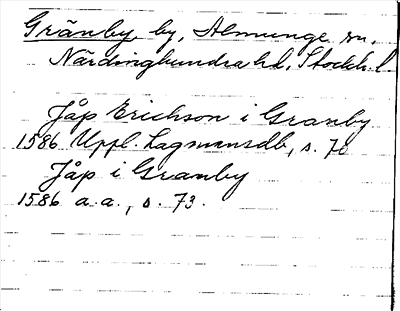 Gränby, by, Almunge sn,
Närdinghundra hd, Stockh. l
Jåp Erichson i Granby
1586 Uppl. Lagmansdb, s. 70
Jåp i Granby
1586 a.a., s. 73.